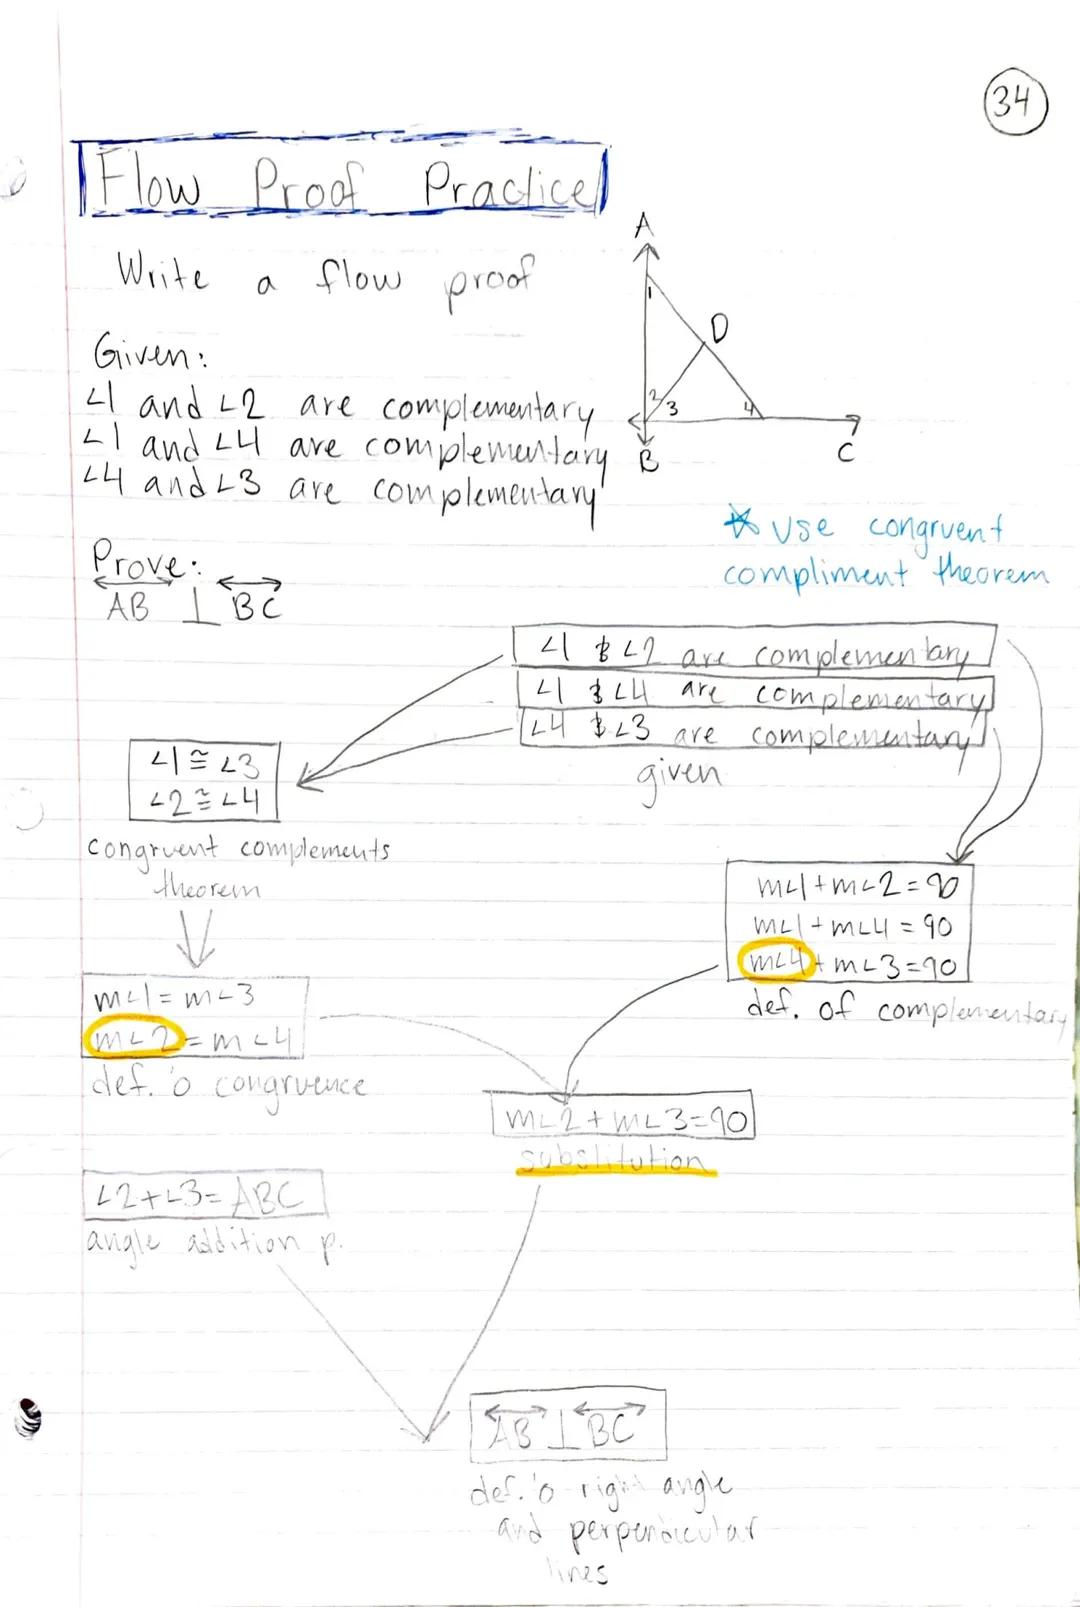 34
Flow Proof Practice
Write a flow proof
Given:
∠1 and ∠2 are complementary
∠1 and ∠4 are complementary
∠4 and ∠3 are complementary
A
1
D
2
3
4
B
C
☆ Use congruent
compliment theorem
Prove:
AB ⊥ BC
∠1 & ∠2 are complementary
∠1 & ∠4 are complementary
∠4 & ∠3 are complementary
given
∠1 ≅ ∠3
∠2 ≅ ∠4
congruent complements
theorem
m∠1 + m∠2 = 90
m∠1 + m∠4 = 90
m∠4 + m∠3 = 90
def. of complementary
m∠1 = m∠3
m∠2 = m∠4
def. 'o congruence
m∠2 + m∠3 = 90
substitution
∠2 + ∠3 = ABC
angle addition p.
AB ⊥ BC
def. 'o right angle
and perpendicular
lines